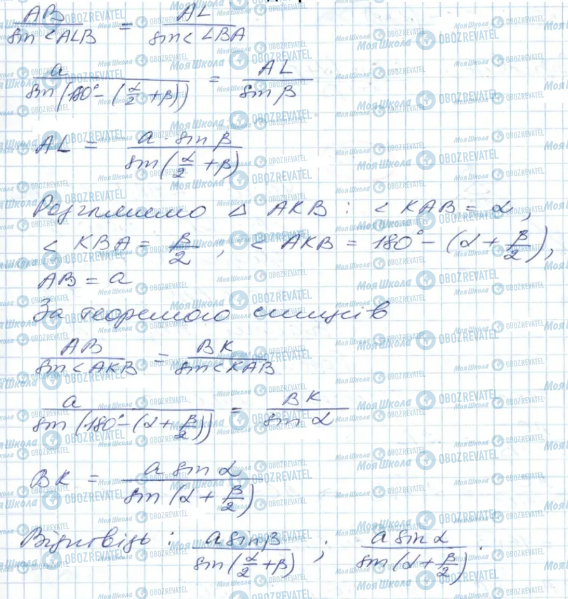 AB / sin<ALB = AL / sin<LBA
a / sin(180° - (α/2 + β)) = AL / sin β
AL = a · sin β / sin(α/2 + β)
Розглянемо △ AKB : < KAB = α,
< KBA = β/2, < AKB = 180° - (α + β/2),
AB = a
За теоремою синусів
AB / sin<AKB = BK / sin<KAB
a / sin(180° - (α + β/2)) = BK / sin α
BK = a sin α / sin(α + β/2)
Відповідь : a sin β / sin(α/2 + β) ; a sin α / sin(α + β/2) .
Моя Школа OBOZREVATEL